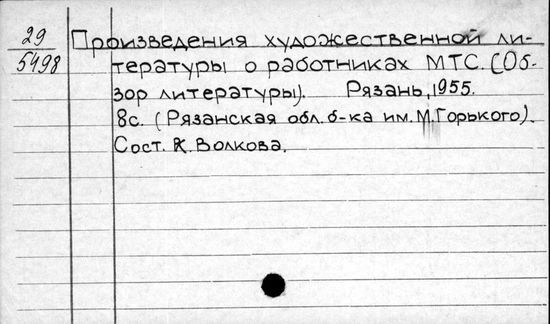 29
5498
Произведения художественной ли-
тературы о работниках МТС. (Об-
зор литературы). Рязань, 1955.
8с. (Рязанская обл. б-ка им. М. Горького).
Сост. К. Волкова.